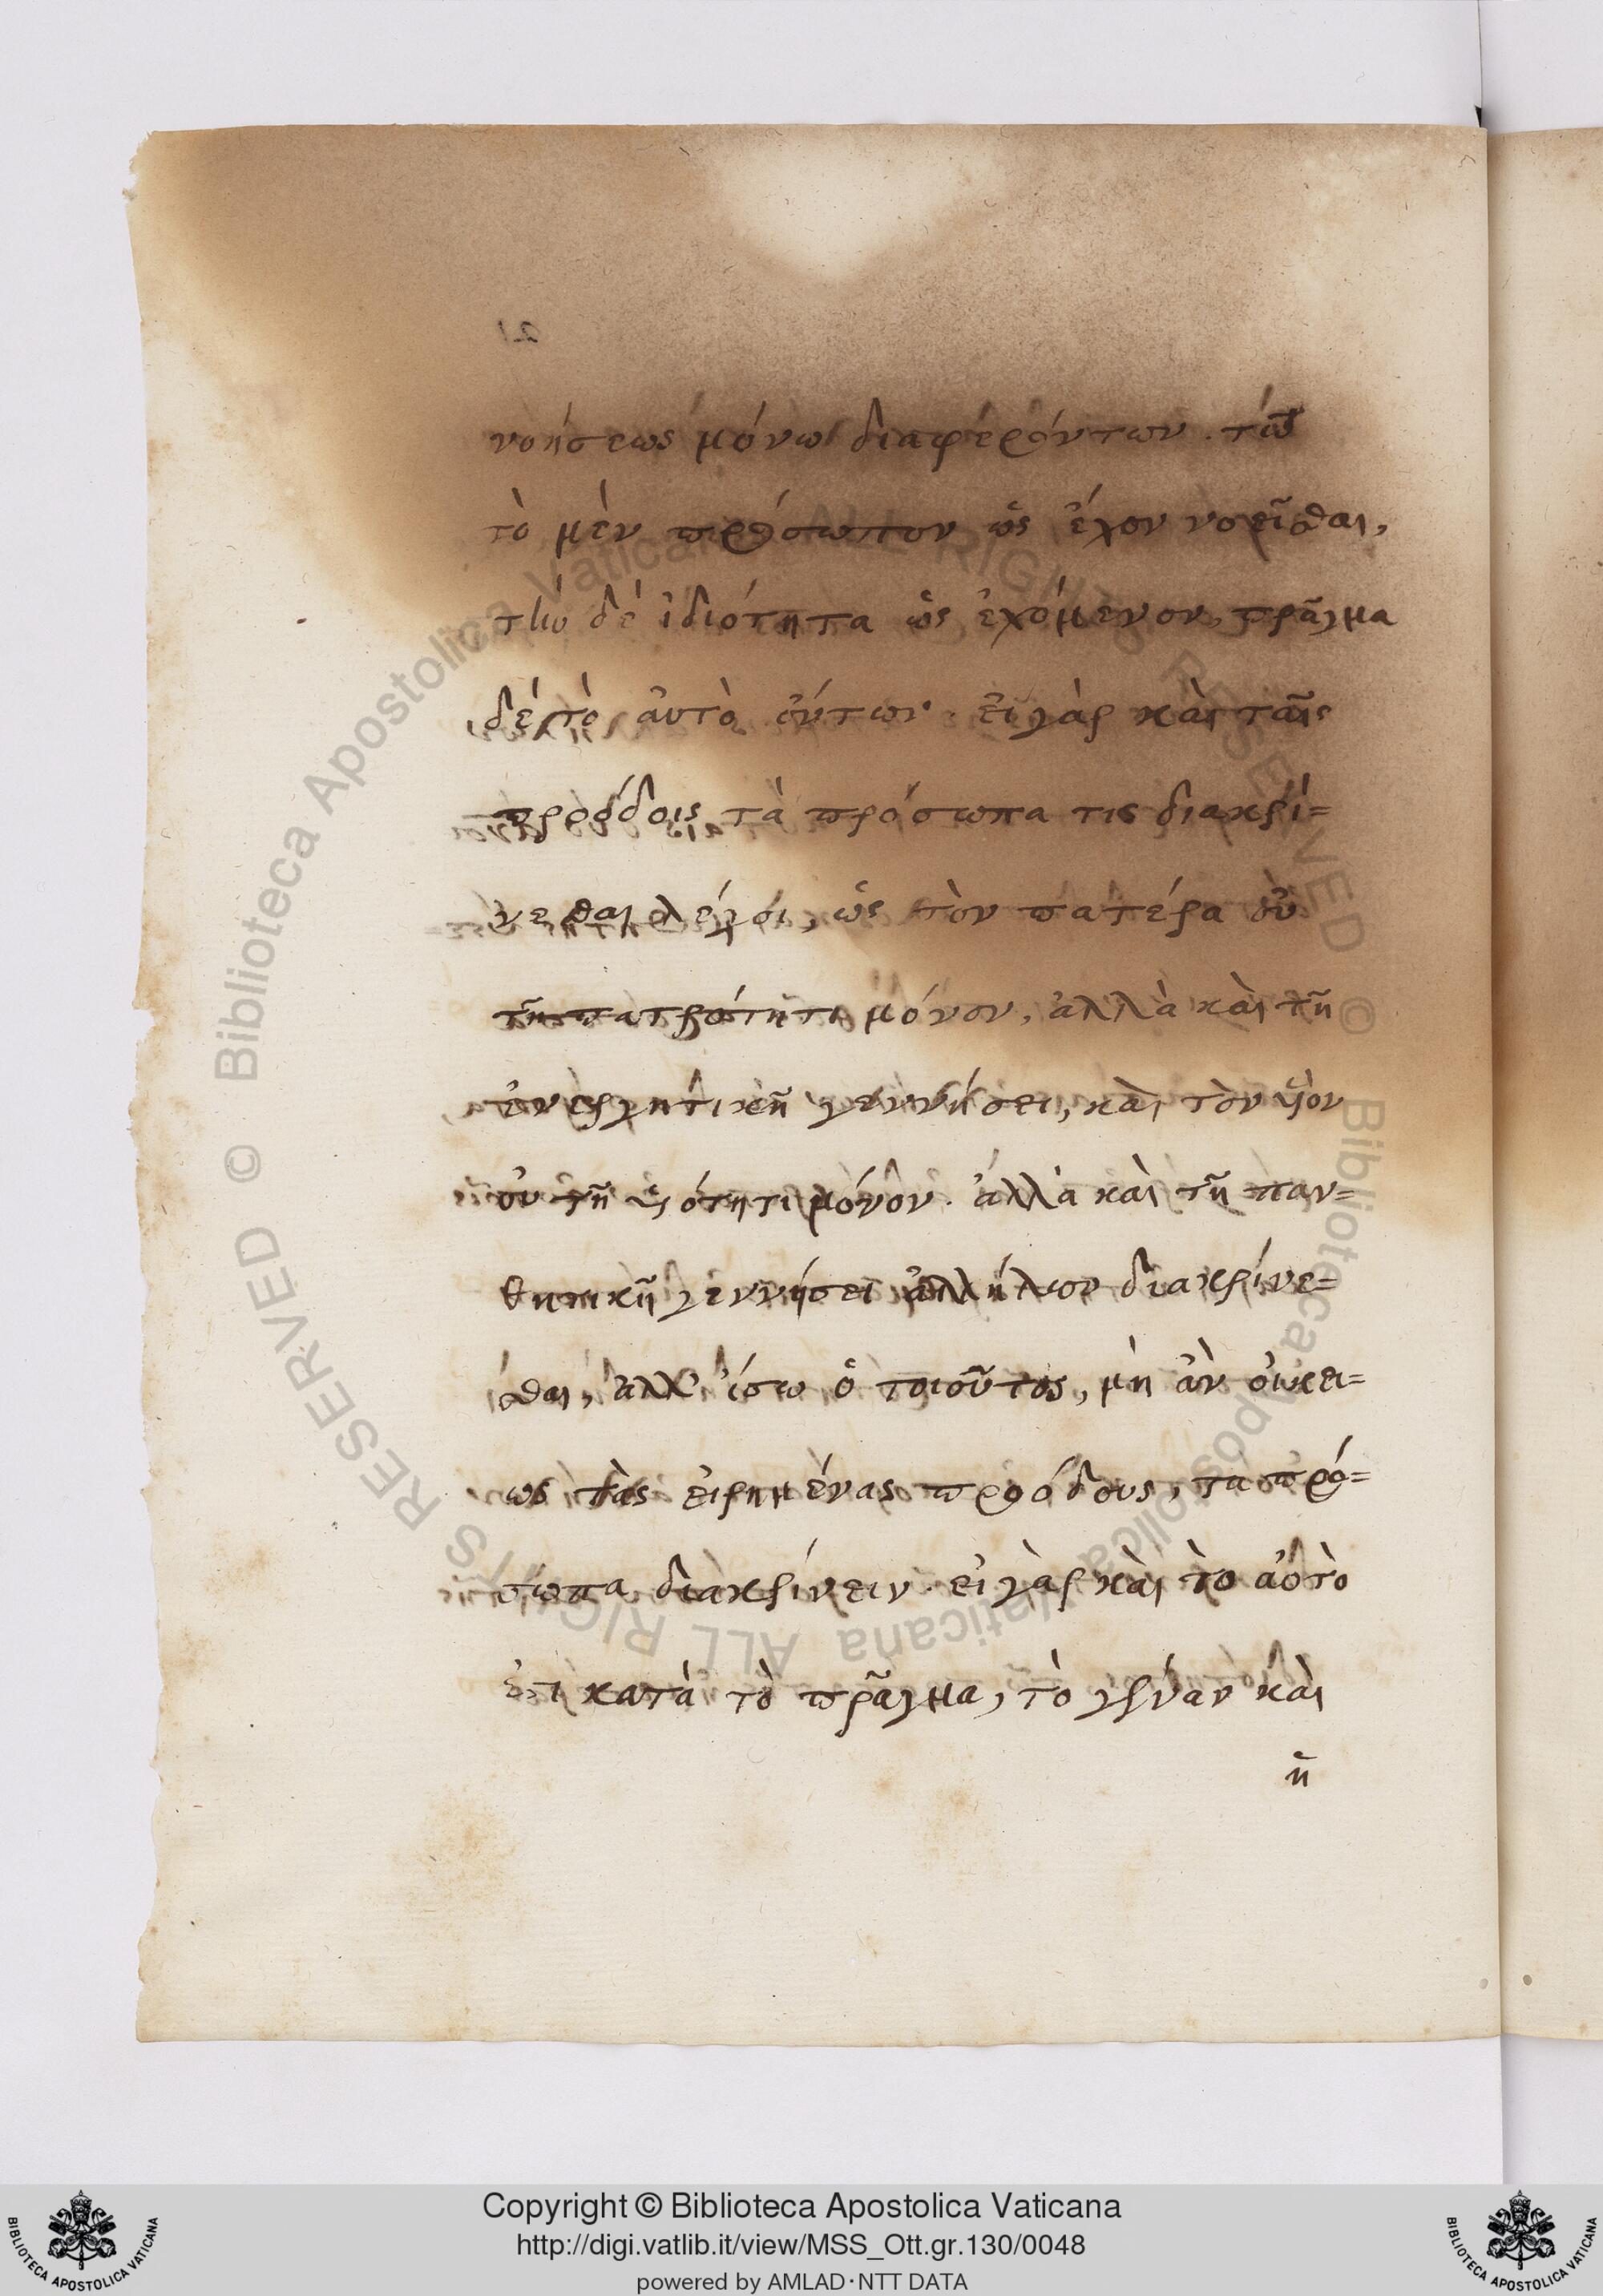 νοήσεως μόνω διαφερόντων. τῶ
τὸ μὲν πρόσωπον ὡς ἔχον νοεῖσθαι,
τὴν δὲ ἰδιότητα ὡς ἐχόμενον, πρᾶγμα
δὲ τὸ αὐτὸ ὄντων. εἰ γὰρ καὶ ταῖς
προόδοις τὰ πρόσωπα τις διακρί=
νεσθαι λέγοι, ὡς τὸν πατέρα οὐ
τῆ πατρότητι μόνον, ἀλλὰ καὶ τῆ
ἐνεργητικῆ γεννήσει, καὶ τὸν υἱὸν
οὐ τῆ υἱότητι μόνον. ἀλλὰ καὶ τῆ παν=
θητικῆ γεννήσει ἀλλήλων διακρίνε=
σθαι, ἀλλ' ἴσω ὁ τοιοῦτος, μὴ ἂν οἰκει=
ως τὰς εἰρημένας προόδους, τα πρό=
σωπα διακρίνειν. εἰ γὰρ καὶ τὸ αὐτὸ
ἐστὶ κατὰ τὸ πρᾶγμα, τὸ γεννᾶν καὶ
ἡ
21
Copyright © Biblioteca Apostolica Vaticana
http://digi.vatlib.it/view/MSS_Ott.gr.130/0048
powered by AMLAD·NTT DATA
BIBLIOTECA APOSTOLICA VATICANA
BIBLIOTECA APOSTOLICA VATICANA
© Biblioteca Apostolica Vaticana ALL RIGHTS RESERVED © Biblioteca Apostolica Vaticana ALL RIGHTS RESERVED